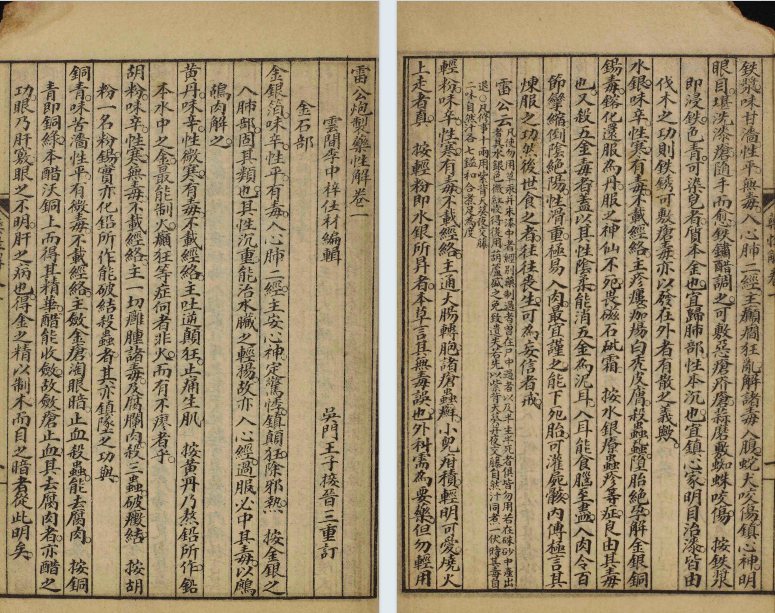 雷公炮製藥性解卷一
雲間李中梓士材編輯　吳門王子接晉三重訂
金石部
金銀箔味辛性平有毒入心肺二經主安心神定驚悸鎮顛狂除邪熱　按金銀之
入肺部固其類也其性沉重能治水臟之輕揚故亦入心經過服必中其毒以鷓
鴣肉解之
黃丹味辛性微寒有毒不載經絡主吐逆顛狂止痛生肌　按黃丹乃熬鉛所作鉛
本水中之金最能制火癲狂等症何者非火而有不瘳者乎
胡粉味辛性寒無毒不載經絡主一切癰腫諸毒及腐爛肉殺三蟲破癥結　按胡
粉一名粉錫實亦化鉛所作能破結殺蟲者其亦鎮墜之功與
銅青味苦濇性平有微毒不載經絡主斂金瘡洵眼暗止血殺蟲能去腐肉　按銅
青即銅綠本醋沃銅上而得其精華醋能收斂故斂瘡止血其去腐肉者亦醋之
功眼乃肝竅眼之不明肝之病也得金之精以制木而目之暗者從此明矣
鉄漿味甘濇性平無毒入心肺二經主癲癇狂亂解諸毒入腹蛇犬咬傷鎮心神明
眼目堪洗漆瘡隨手而愈鉄鏽醋調之可敷惡瘡疥癬蒜磨敷蜘蛛咬傷　按鉄漿
即浸鉄色青可染皂者質本金也宜歸肺部性本沉也宜鎮心家明目治漆皆由
伐木之功則鉄銹可敷瘡毒亦以發在外者有散之義歟
水銀味辛性寒有毒不載經絡主疥瘻痂瘍白禿皮膚殺蟲蝨墮胎絕孕解金銀銅
錫毒鎔化還服為丹服之神仙不死畏磁石砒霜　按水銀療蟲疹等症良由其毒
也又殺五金毒者蓋以其性陰柔能消五金為泥耳入耳能食腦至盡入肉令百
節攣縮倒陰絕陽性滑重極易入肉最宜謹之能下死胎可灌屍骸內傅極言其
煉服之功然後世食之者往往喪生可為妄信者戒
雷公云凡使勿用草汞并朱漆中者經別藥制過者曾在尸中過者以及半生半死者俱皆勿用若在硃砂中產出
者其水銀色微紅收得後用葫蘆盛之免致遺失右先以紫背天葵并夜交藤自然汁同煮一伏時其毒自
退○凡修事十兩用紫背天葵夜交藤
二味自然汁各七鎰和合煮足為度
輕粉味辛性寒有毒不載經絡主通大腸轉胞諸瘡蟲癬小兒疳積輕明可愛燒火
上走者真　按輕粉即水銀所昇者本草言其無毒誤也外科需為要藥但勿輕用